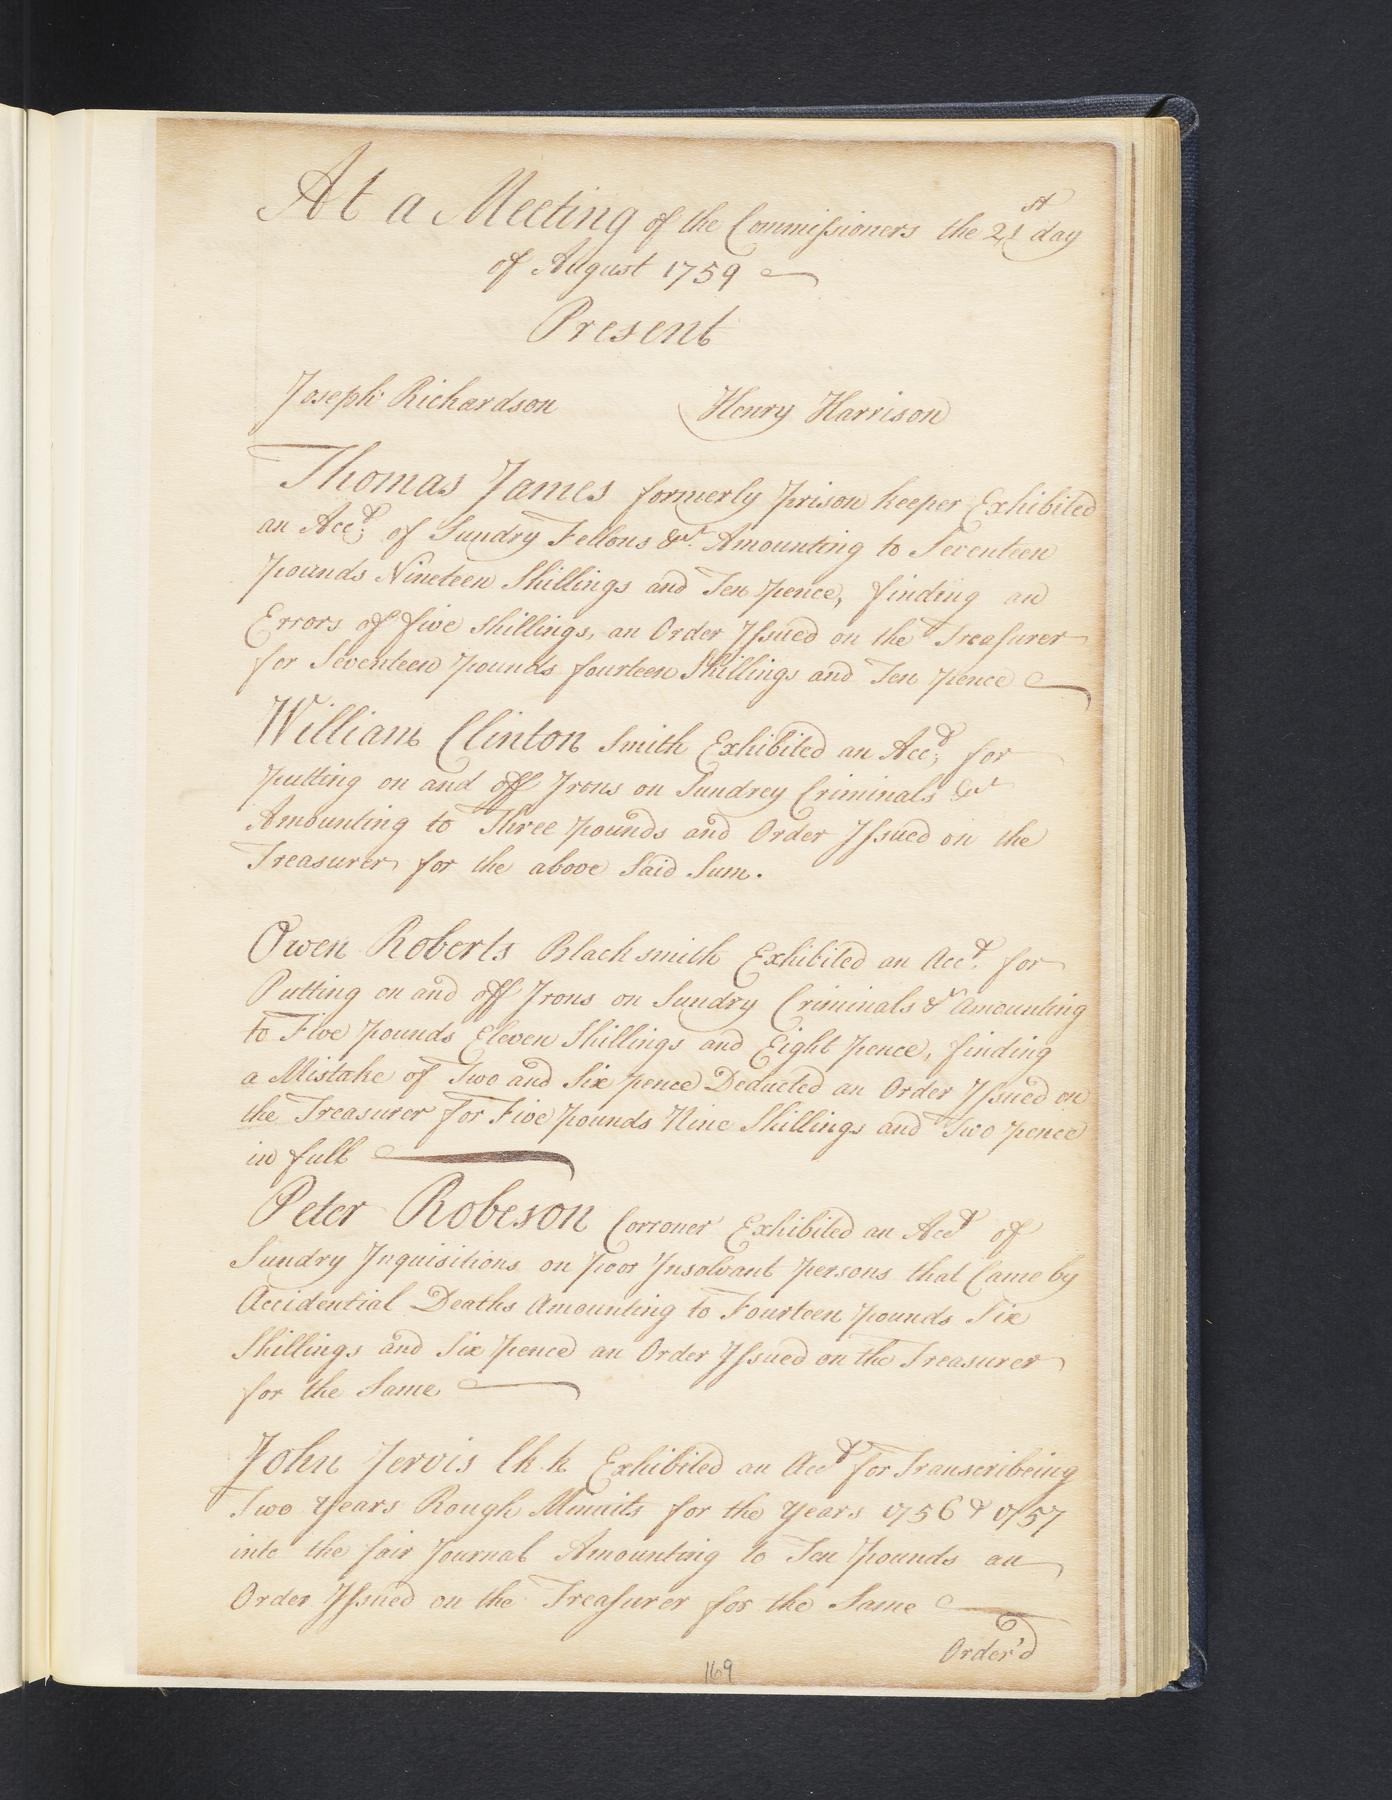 At a Meeting of the Commissioners the 21st day
of August 1759
Present
Joseph Richardson Henry Harrison
Thomas James formerly prison keeper Exhibited
an Acct. of Sundry Fellons &c. Amounting to Seventeen
pounds Nineteen Shillings and Ten pence, finding an
Errors of five shillings, an Order Issued on the Treasurer
for Seventeen pounds fourteen Shillings and Ten pence
William Clinton Smith Exhibited an Acct. for
putting on and off Irons on Sundrey Criminals &ct
Amounting to Three pounds and Order Issued on the
Treasurer for the above Said Sum.
Owen Roberts Black smith Exhibited an Acct. for
Putting on and off Irons on Sundry Criminals &c Amounting
to Five pounds Eleven Shillings and Eight pence, finding
a Mistake of Two and Six pence Deducted an Order Issued on
the Treasurer for Five pounds Nine Shillings and Two pence
in full
Peter Robeson Corroner Exhibited an Acct of
Sundry Inquisitions on poor Insolvant persons that Came by
Accidential Deaths Amounting to Fourteen pounds Six
Shillings and Six pence an Order Issued on the Treasurer
for the Same
John Jervis Clk Exhibited an Acct for Transcribeing
Two Years Rough Minnits for the Years 1756 & 1757
into the fair Journal Amounting to Ten pounds an
Order Issued on the Treasurer for the Same
Order'd
169